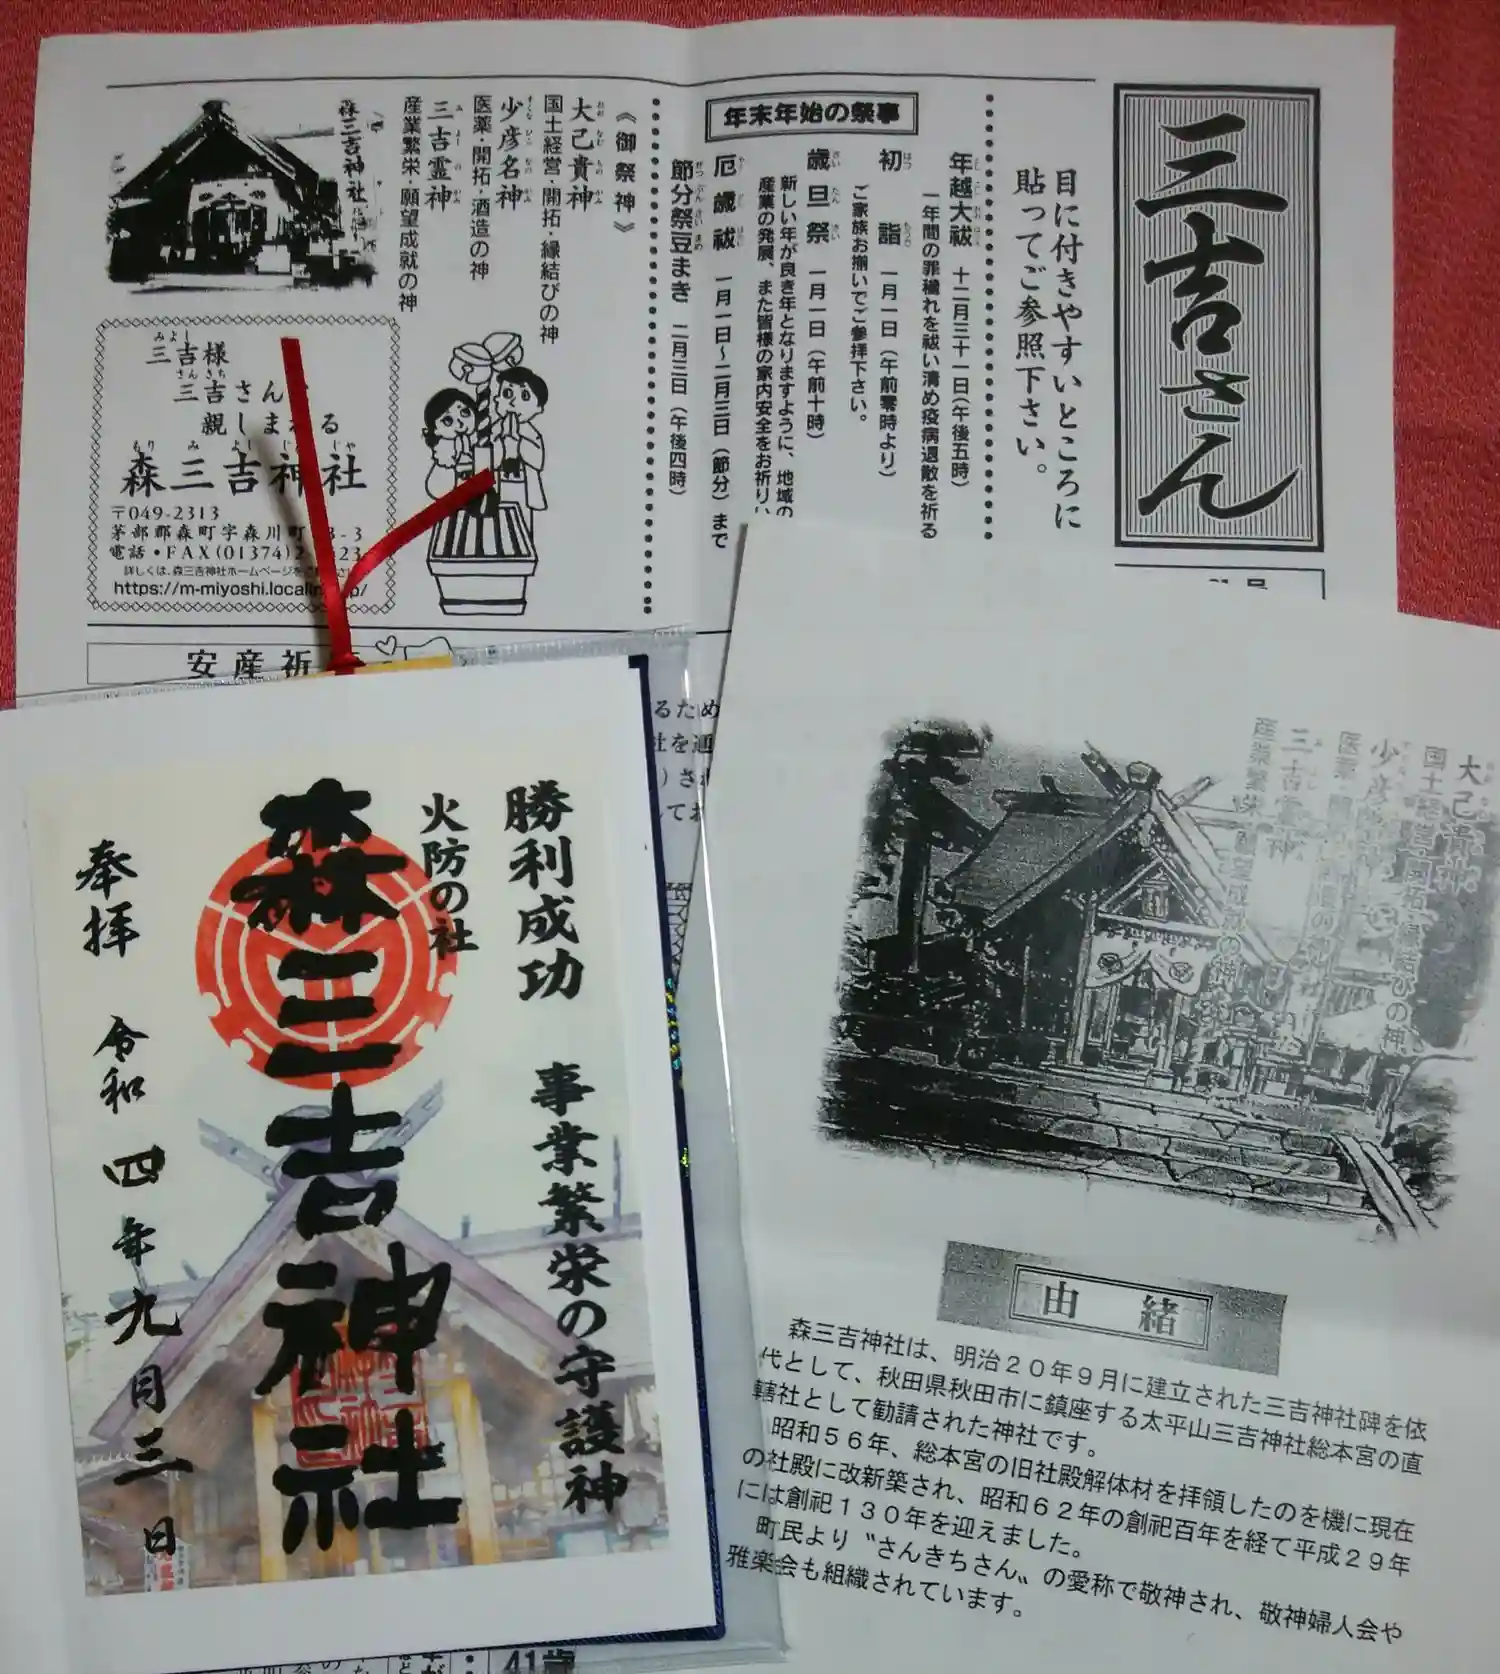 三吉さん
目に付きやすいところに
貼ってご参照下さい。
年末年始の祭事
年越大祓 十二月三十一日(午後五時)
一年間の罪穢れを祓い清め疫病退散を祈る
初詣 一月一日(午前零時より)
ご家族お揃いでご参拝下さい。
歳旦祭 一月一日(午前十時)
新しい年が良き年となりますように、地域の
産業の発展、また皆様の家内安全をお祈りい
厄歳祓 一月一日～二月三日(節分)まで
節分祭豆まき 二月三日(午後四時)
《御祭神》
大己貴神
国土経営・開拓・縁結びの神
少彦名神
医薬・開拓・酒造の神
三吉霊神
産業繁栄・願望成就の神
森三吉神社
三吉様
三吉さん
親しま
る
森三吉神社
〒049-2313
茅部郡森町字森川町
3-3
電話・FAX(01374)2
詳しくは、森三吉神社ホームページを
https://m-miyoshi.localin
安産祈
るため
勝利成功 事業繁栄の守護神
火防の社
森三吉神社
奉拝 令和四年九月三日
大己貴神
国土経営・開拓・縁結びの神
少彦
医薬
の神
三吉霊神
産業繁栄
成就の神
由緒
森三吉神社は、明治20年9月に建立された三吉神社碑を依
代として、秋田県秋田市に鎮座する太平山三吉神社総本宮の直
轄社として勧請された神社です。
昭和56年、総本宮の旧社殿解体材を拝領したのを機に現在
の社殿に改新築され、昭和62年の創祀百年を経て平成29年
には創祀130年を迎えました。
町民より〝さんきちさん〟の愛称で敬神され、敬神婦人会や
雅楽会も組織されています。
41歳